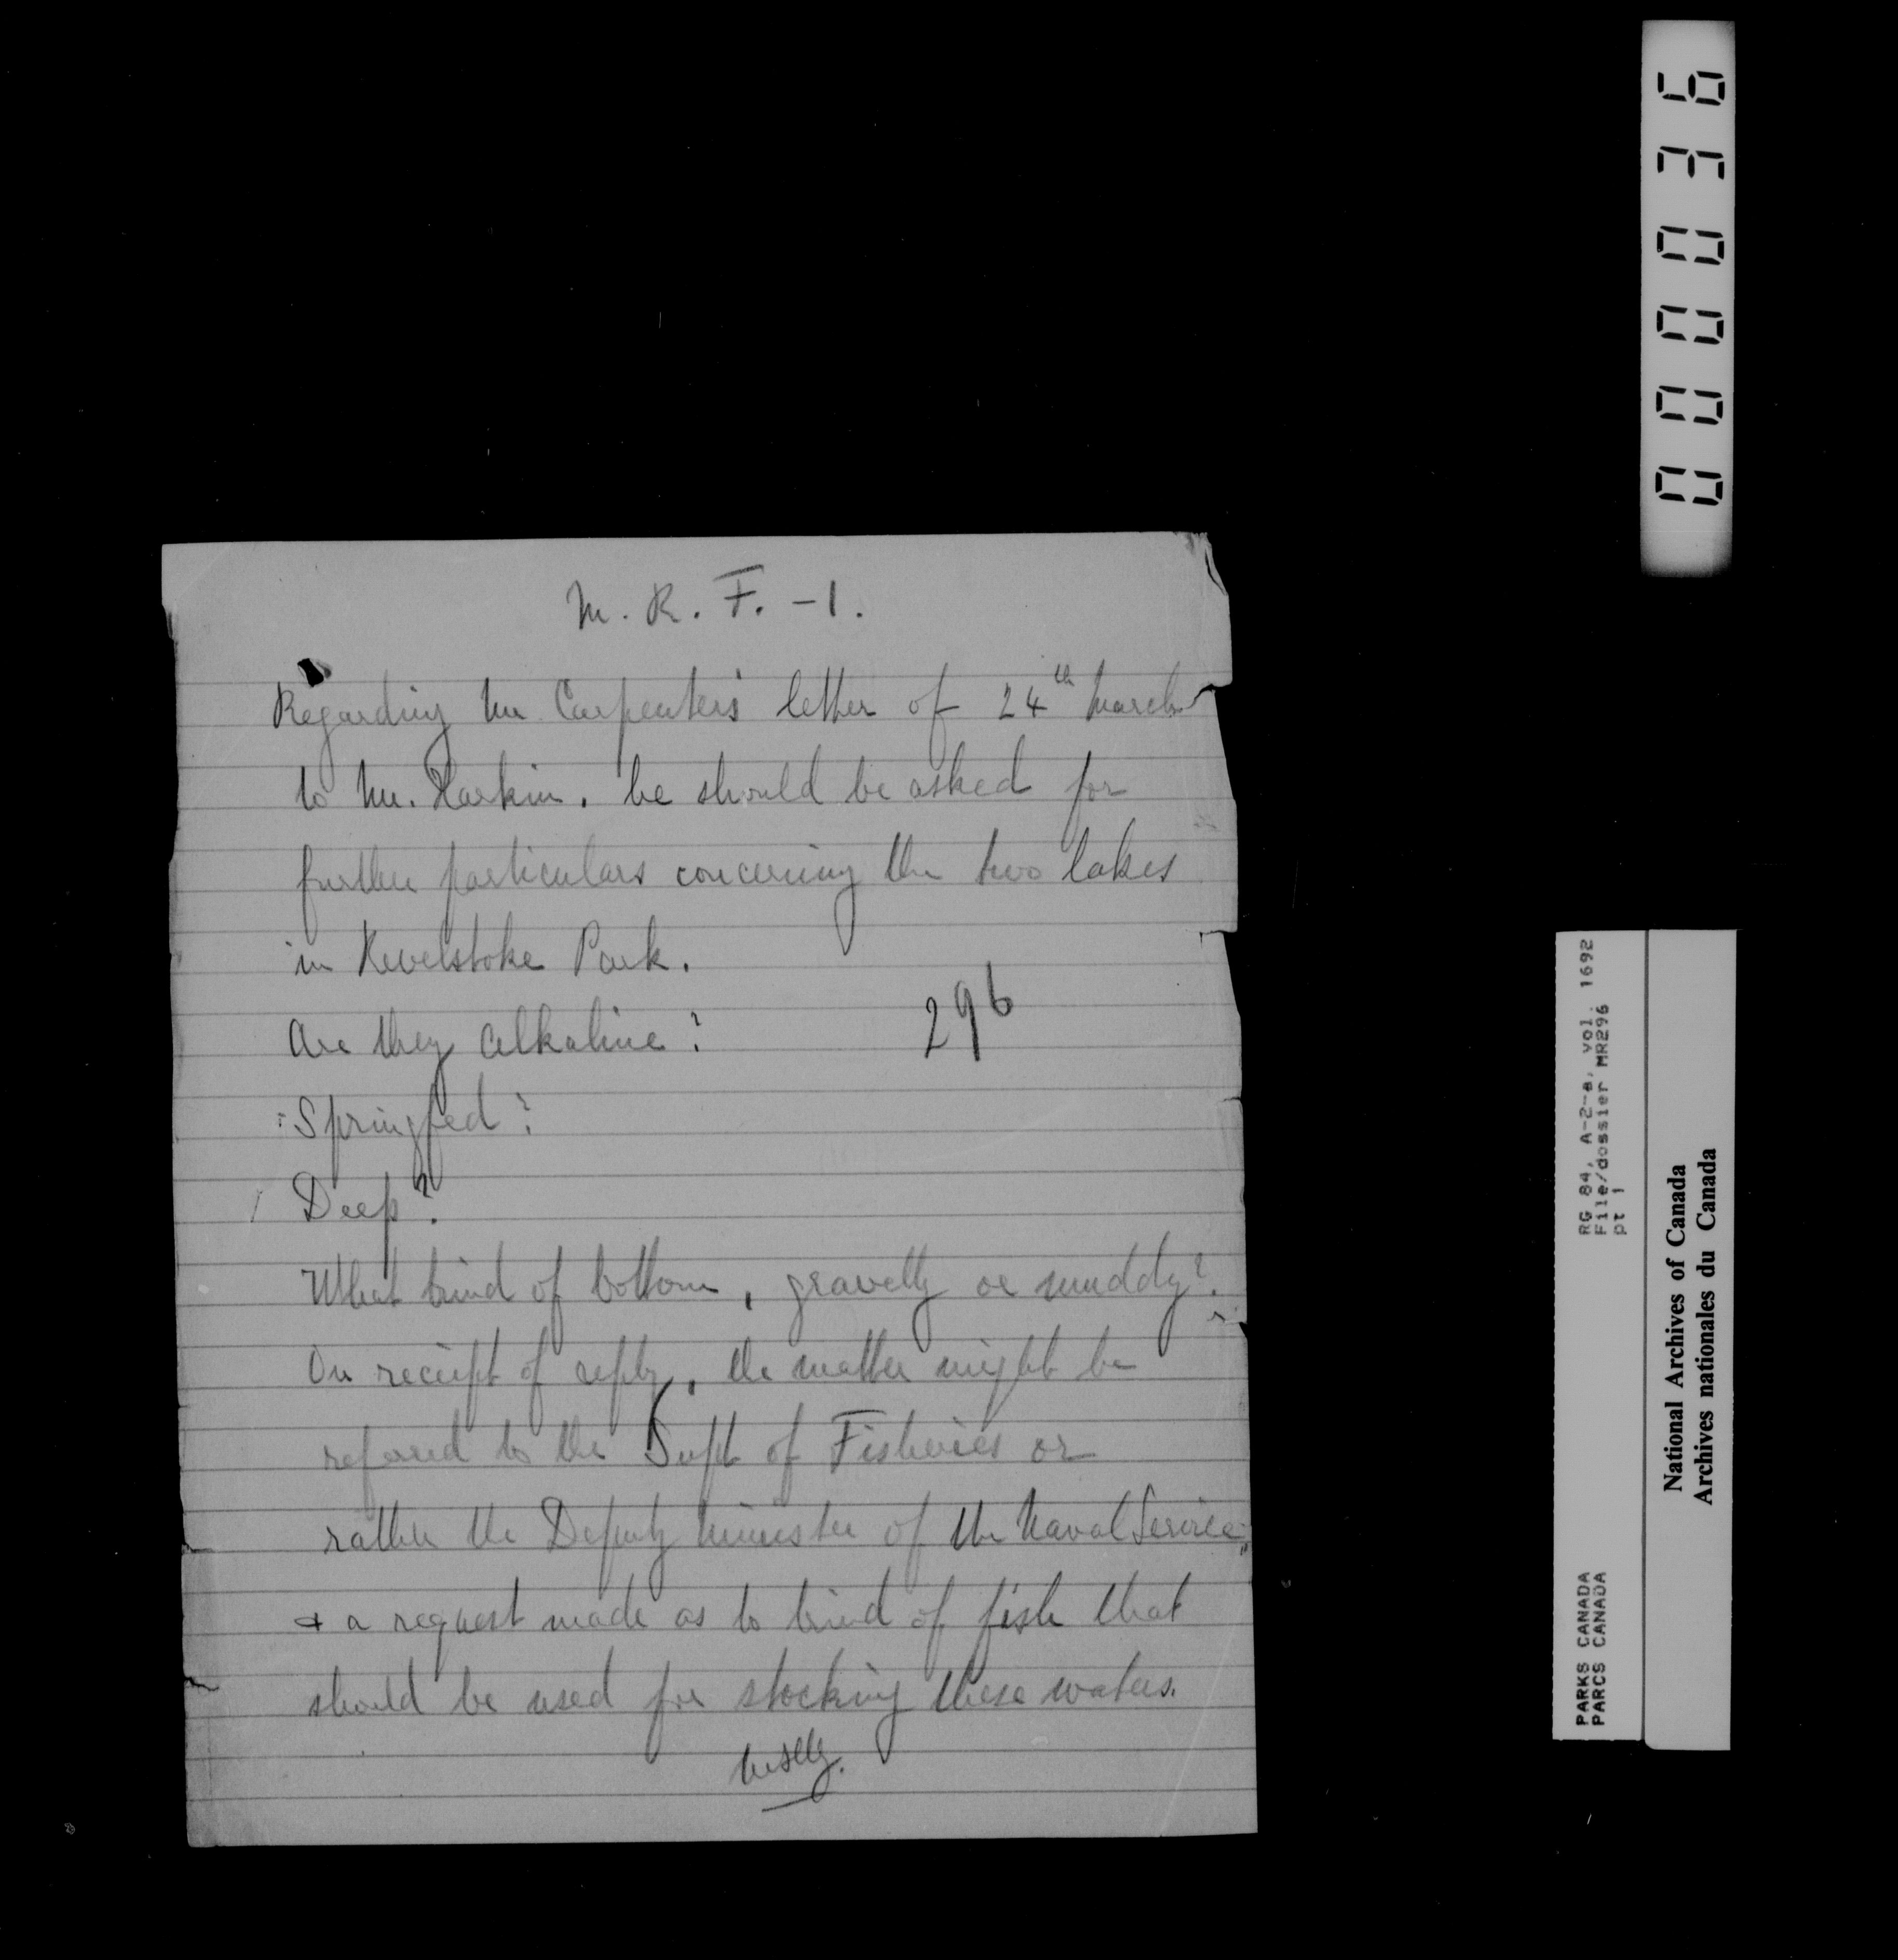 M. R. F. -1.
Regarding Mr Carpenter's letter of 24th March
to Mr. Harkin, he should be asked for
further particulars concerning the two lakes
in Revelstoke Park.
296
Are they alkaline?
Springfed?
Deep?
What kind of bottom, gravelly or muddy?
On receipt of reply, the matter might be
refered to the Supt of Fisheries or
rather the Deputy Minister of the Naval Service,
& a request made as to kind of fish that
should be used for stocking these waters.
000036
RG 84, A-2-a, vol. 1692
File/dossier MR296
pt 1
PARKS CANADA
PARCS CANADA
National Archives of Canada
Archives nationales du Canada